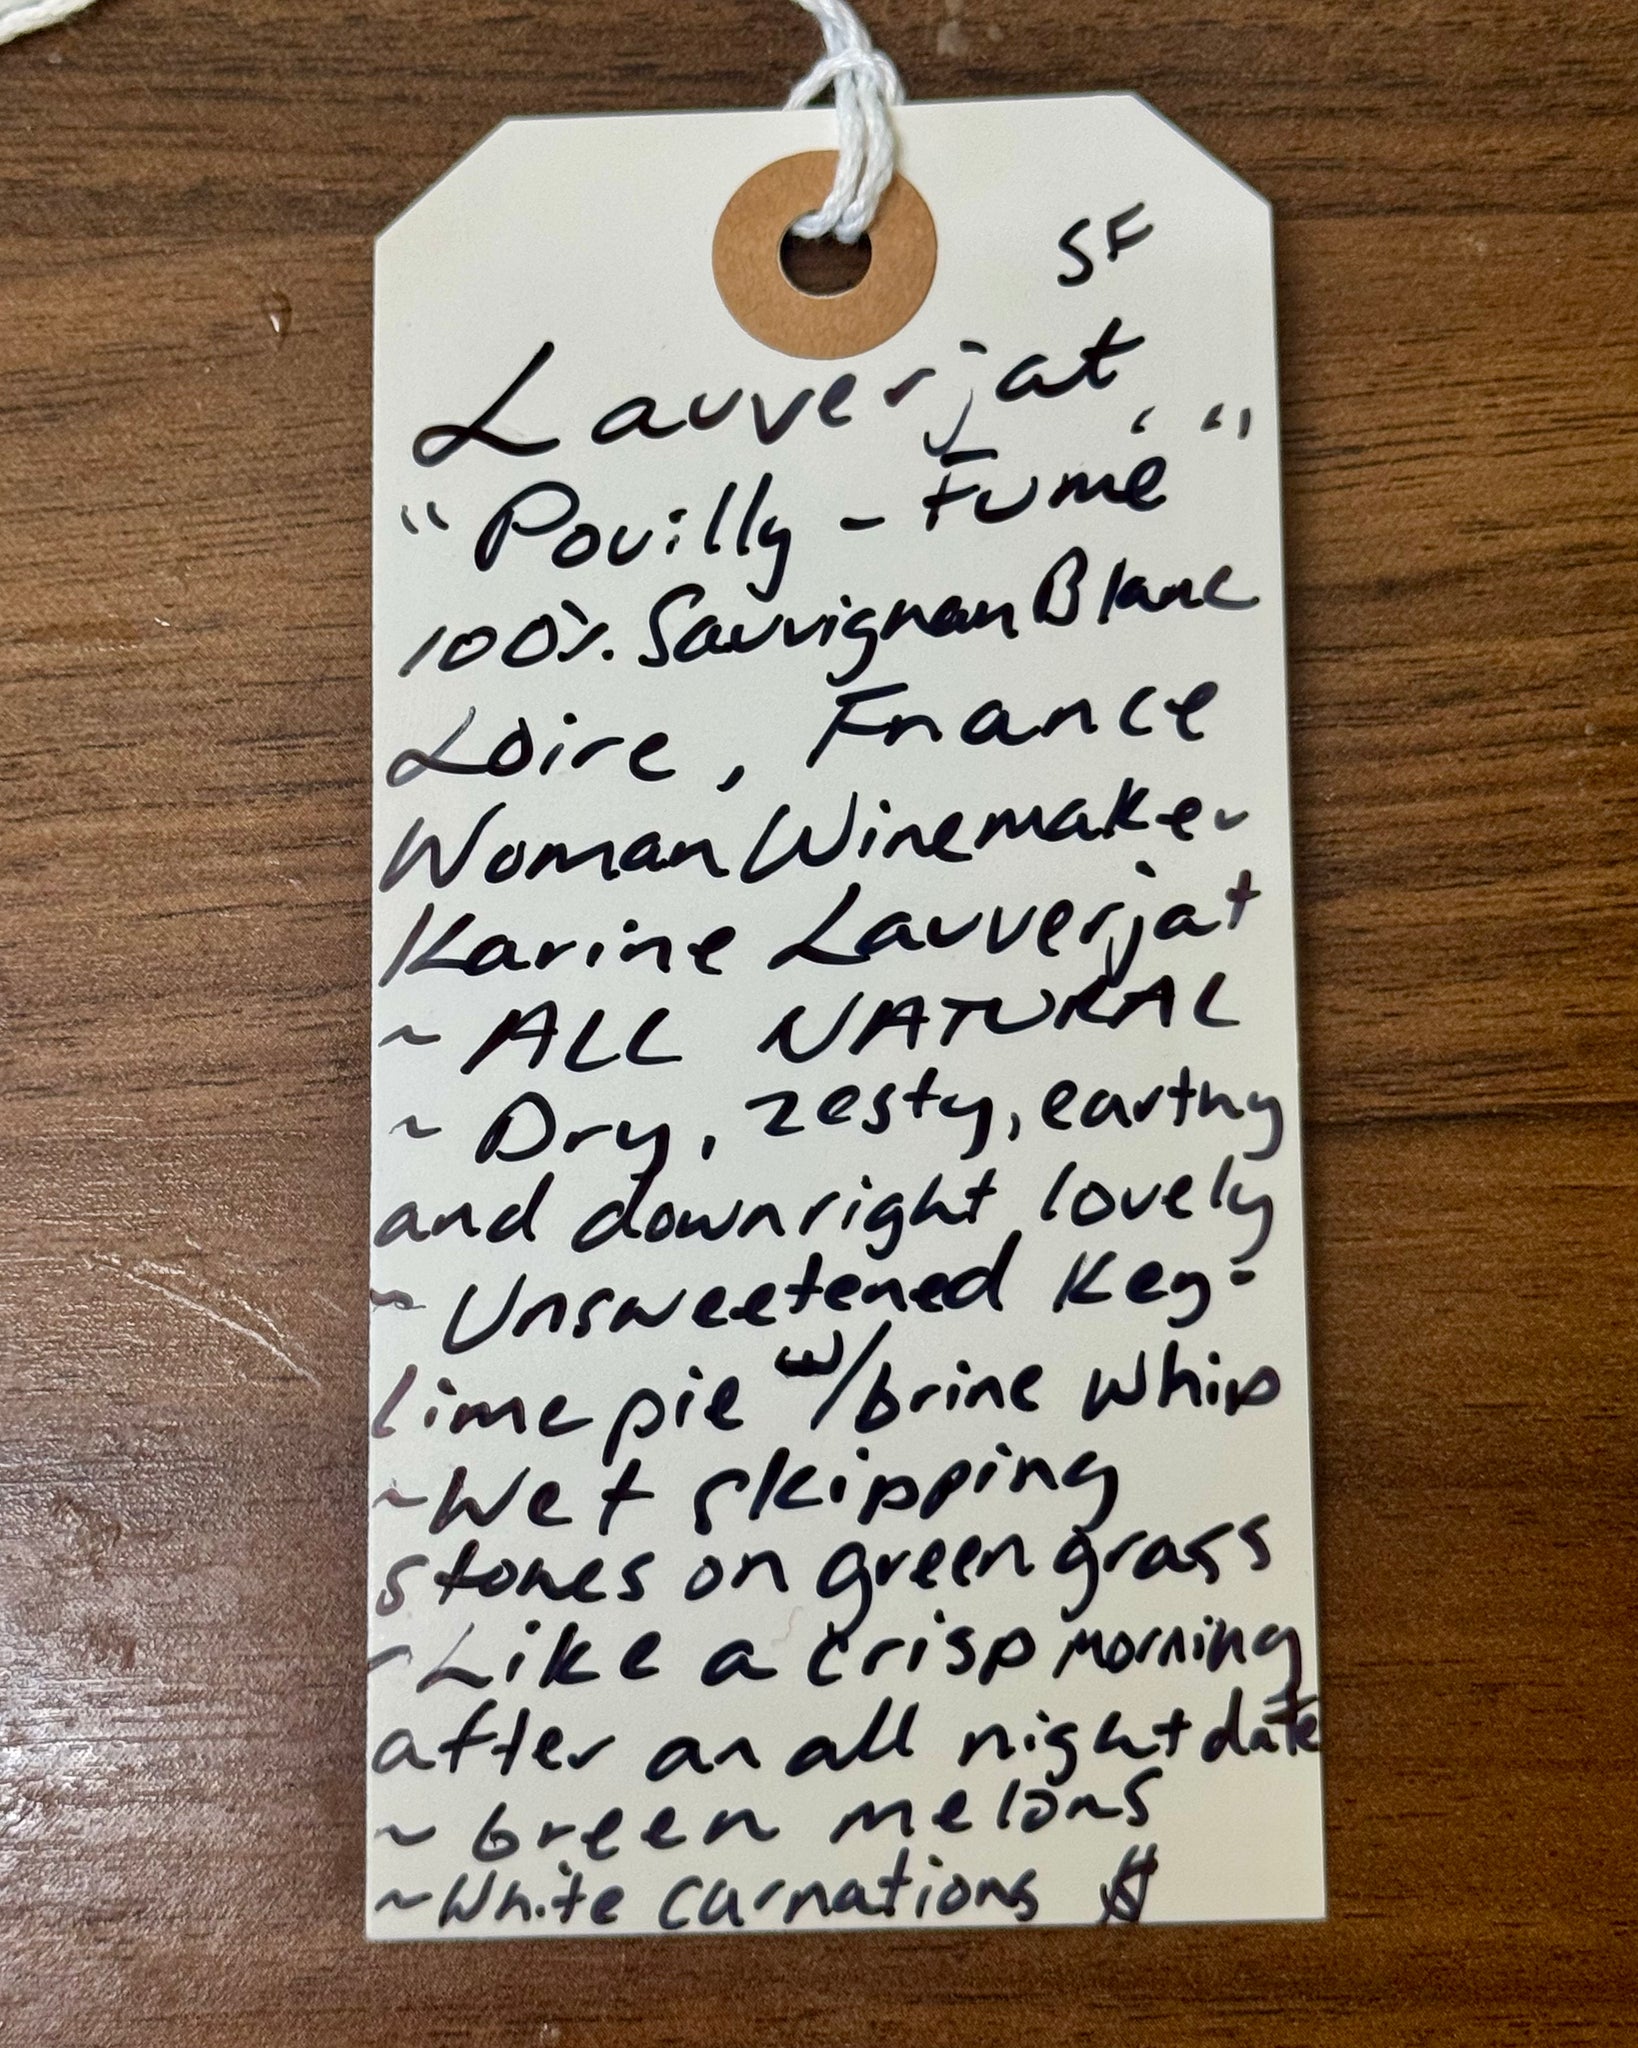 SF
Lauverjat
"Pouilly-Fumé"
100% Sauvignan Blanc
Loire, France
Woman Winemaker
Karine Lauverjat
~ ALL NATURAL
~ Dry, zesty, earthy
and downright lovely
~ Unsweetened Key-
lime pie w/brine whip
~ Wet skipping
stones on green grass
~ Like a crisp morning
after an all night date
~ Green melons
~ White carnations